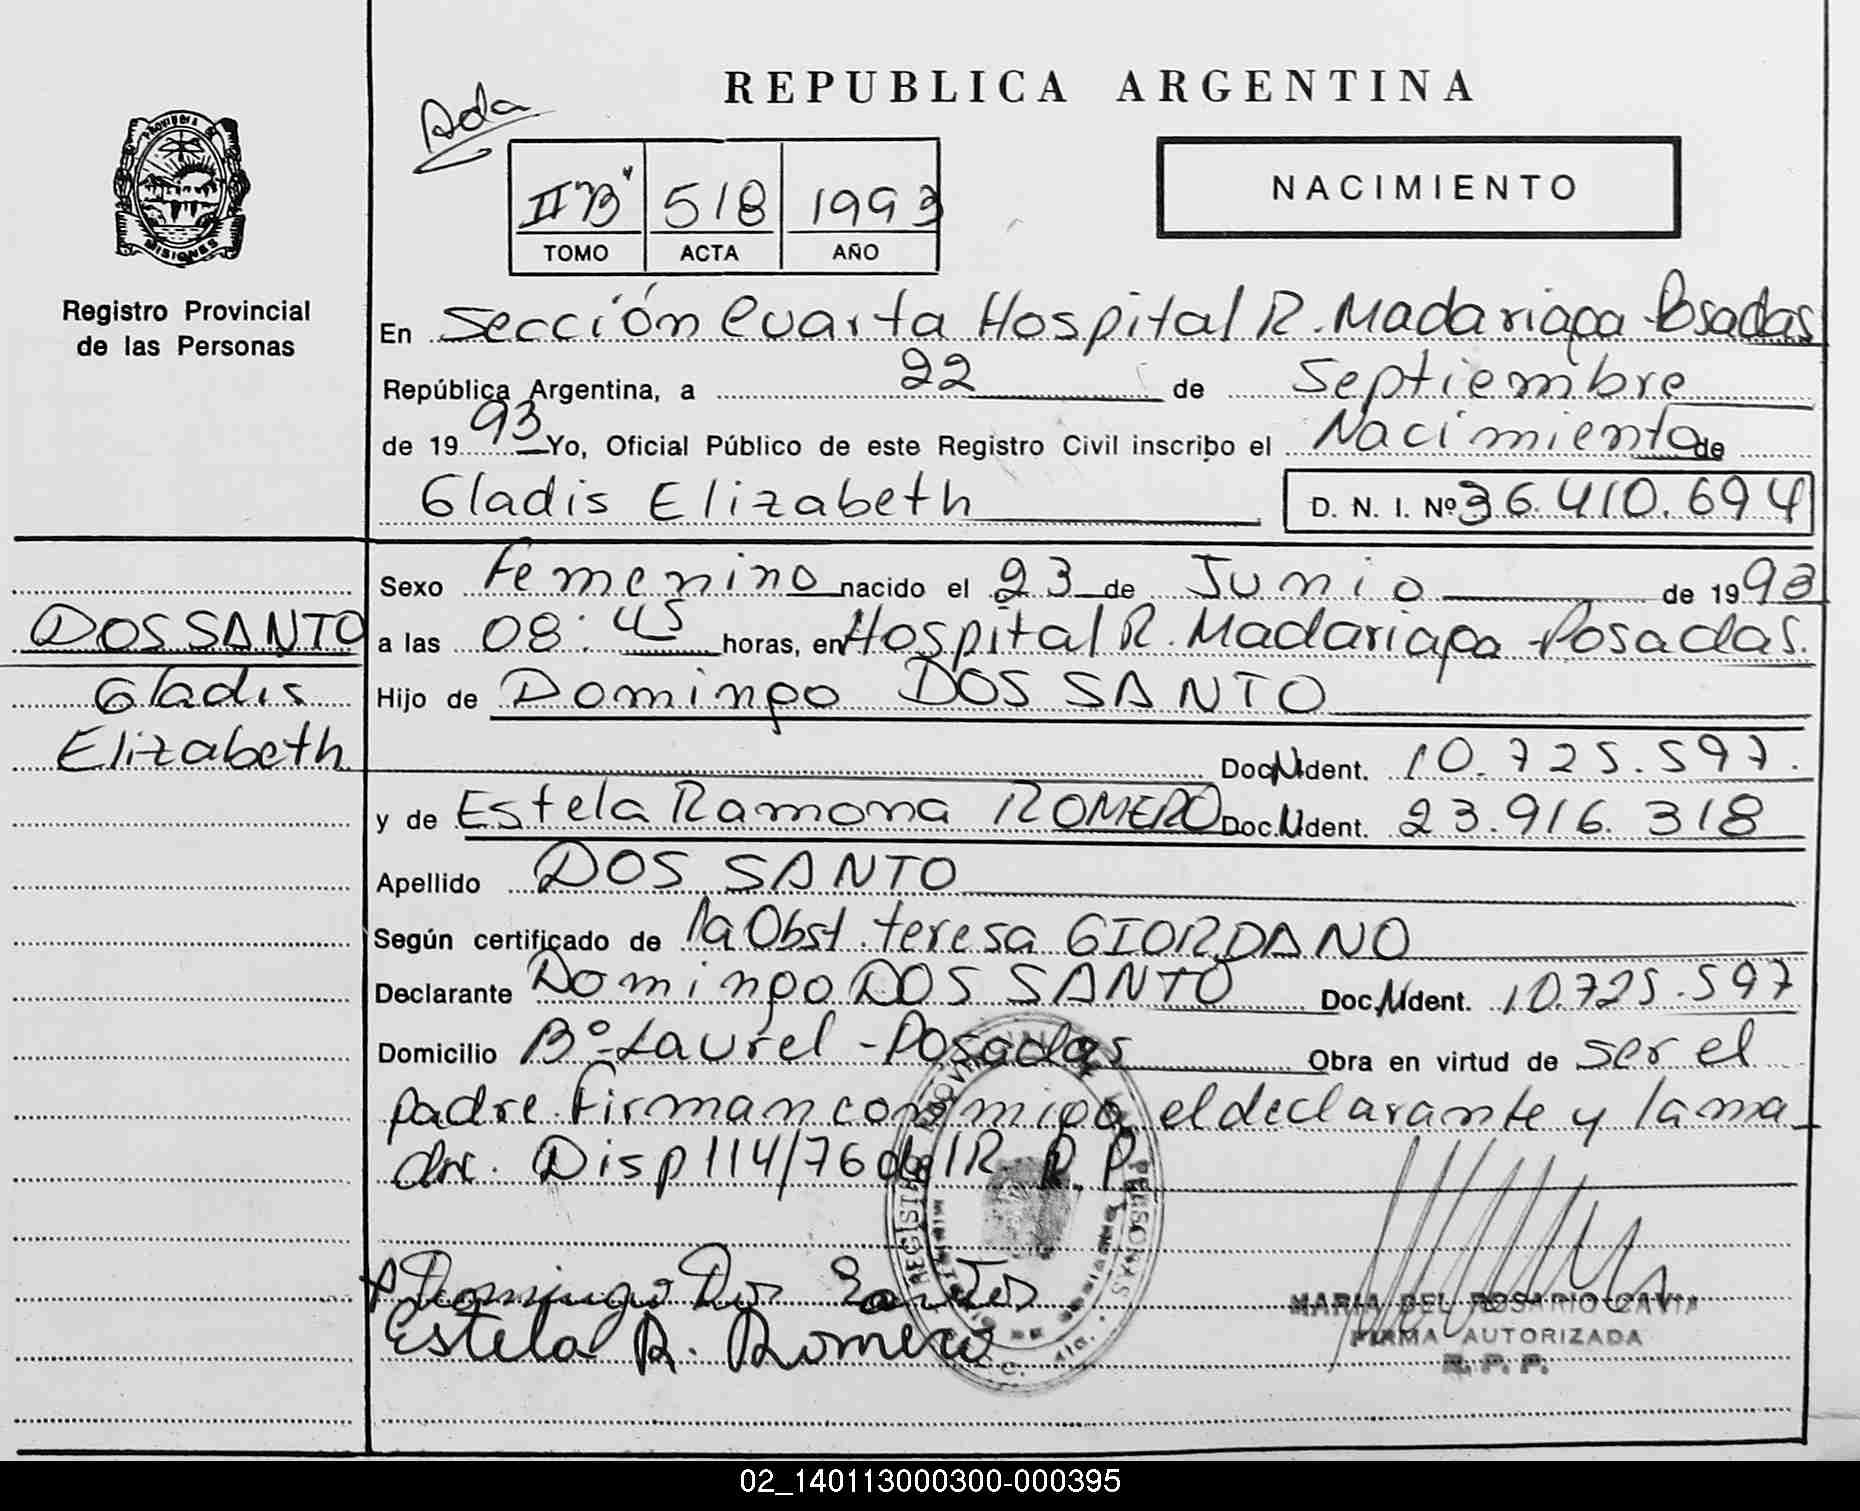 REPUBLICA ARGENTINA
Ada
PROVINCIA DE
MISIONES
Registro Provincial
de las Personas
II "B" 518 1993
TOMO ACTA AÑO
NACIMIENTO
En Sección Cuarta Hospital R. Madariaga - Posadas
República Argentina, a 22 de Septiembre
de 1993 Yo, Oficial Público de este Registro Civil inscribo el Nacimiento de
Gladis Elizabeth D. N. I. Nº 36.410.694
Sexo Femenino nacido el 23 de Junio de 1993
DOS SANTO
a las 08:45 horas, en Hospital R. Madariaga - Posadas.
Gladis
Hijo de Domingo DOS SANTO
Elizabeth
Doc. N. Ident. 10.725.597.
y de Estela Ramona ROMERO Doc. N. Ident. 23.916.318
Apellido DOS SANTO
Según certificado de la Obst. teresa GIORDANO
Declarante Domingo DOS SANTO Doc. N. Ident. 10.725.597
Domicilio Bº - Laurel - Posadas Obra en virtud de ser el
padre. Firman conmigo el declarante y la ma
dre. Disp 114/76 del R. P. P.
Domingo Dos Santos
Estela R. Romero
REGISTRO PROVINCIAL PERSONAS
MARIA DEL ROSARIO CAVIA
FIRMA AUTORIZADA
R. P. P.
02_140113000300-000395